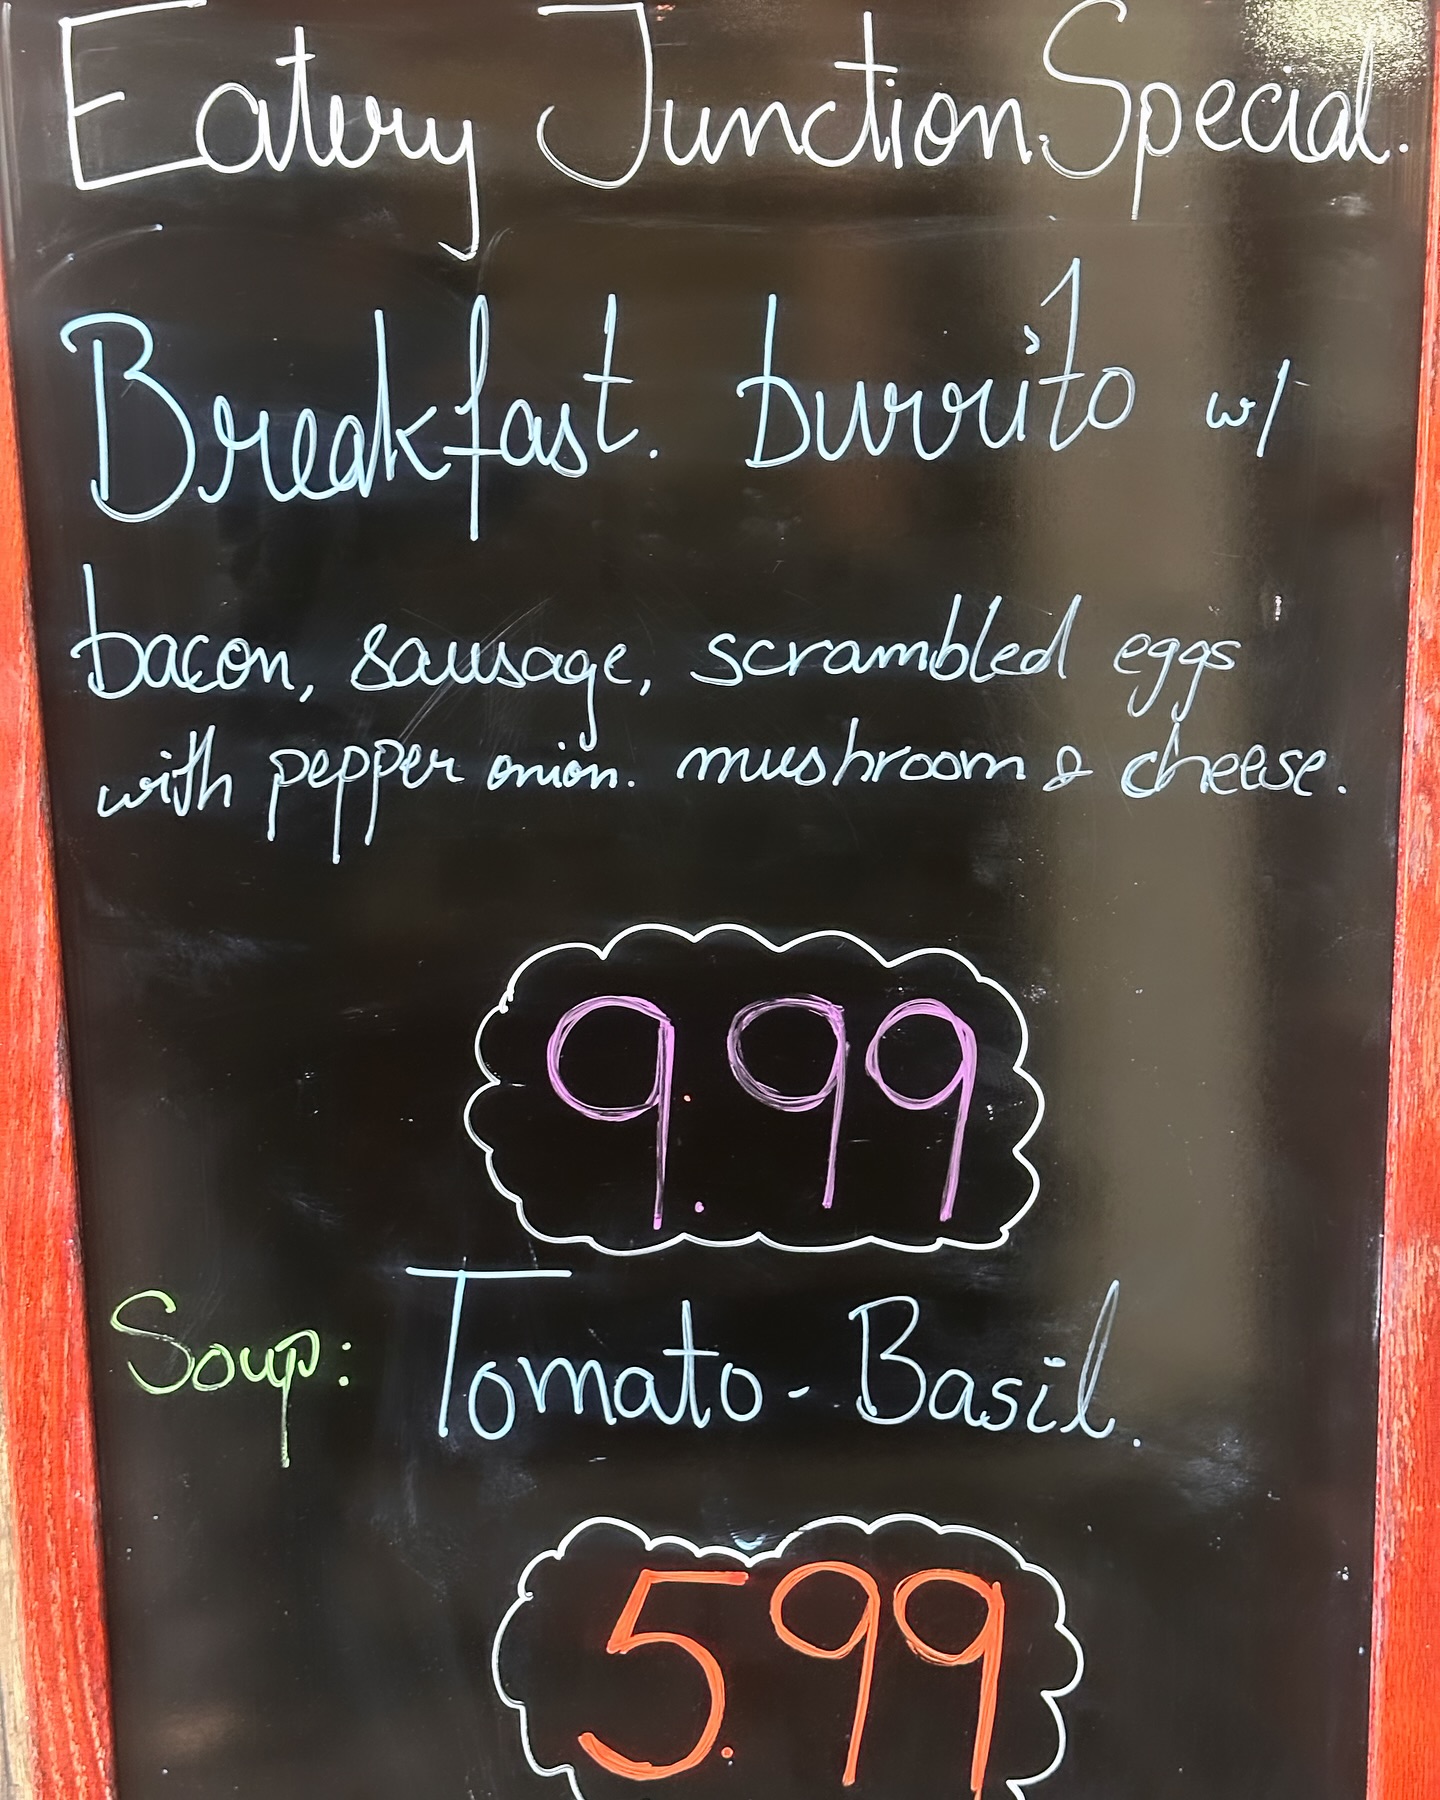 Eatery Junction Special.
Breakfast. burrito w/
bacon, sausage, scrambled eggs
with pepper onion. mushroom & cheese.
9.99
Soup: Tomato-Basil.
5.99